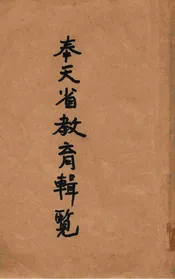 奉天省教育輯覽